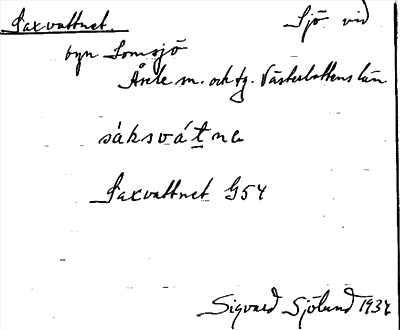 Saxvattnet. Sjö vid
byn Lomsjö
Åsele sn. och tg. Västerbottens län
sáksvátne
Saxvattnet G54
Sigvard Sjölund 1934